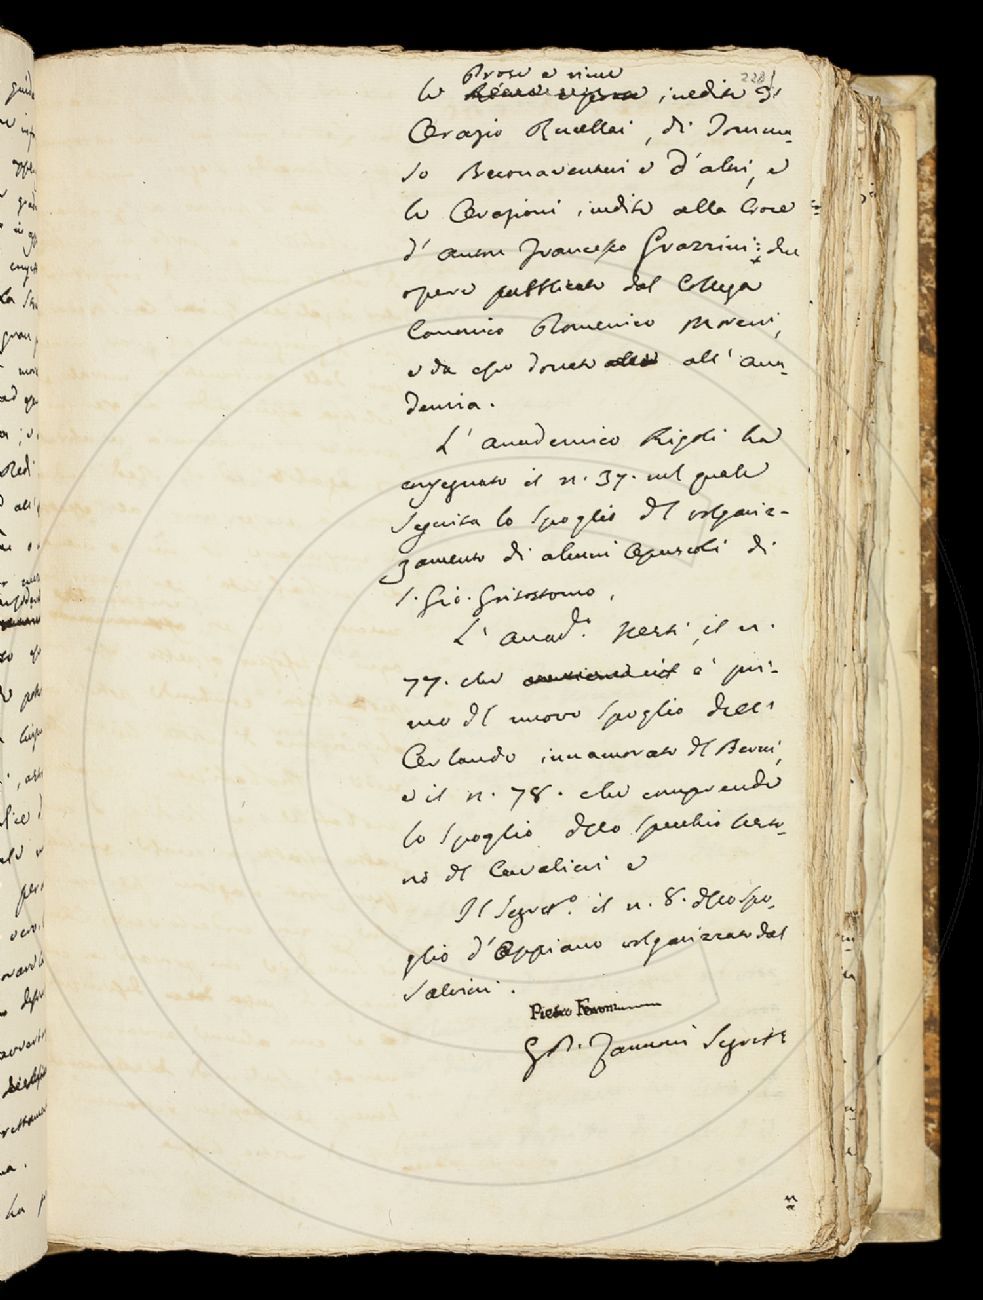 228
Prose e rime
le inedite di
Orazio Rucellai, di Tomma-
so Buonaventuri e d'altri, e
le Orazioni inedite alla Croce
d'Anton Francesco Grazzini: due
opere pubblicate dal Collega
Canonico Domenico Moreni,
e da esso donate all'Acca-
demia.
L'Accademico Rigoli ha
consegnato il n. 37. nel quale
seguita lo spoglio del volgariz-
zamento di alcuni Opuscoli di
S. Gio. Grisostomo.
L'Accad.º Nesti, il n.
77. che è pri-
mo del nuovo spoglio dell'
Orlando innamorato del Berni,
e il n. 78. che comprende
lo spoglio dello specchio Usto-
rio del Cavalieri e
Il Segret.º il n. 8. dello spo-
glio d'Appiano volgarizzato dal
Salvini.
Pietro Ferroni
G. B. Zannoni Segret.